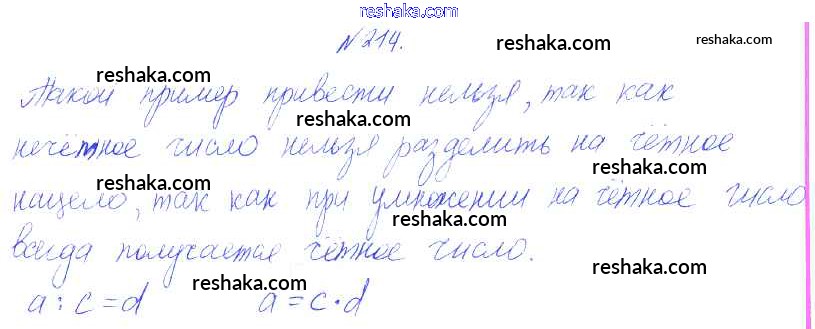 reshaka.com
№214.
reshaka.com
reshaka.com
reshaka.com
Такой пример привести нельзя, так как
reshaka.com
нечётное число нельзя разделить на чётное
reshaka.com
reshaka.com
нацело, так как при умножении на чётное число
reshaka.com
всегда получается чётное число.
reshaka.com
reshaka.com
a : c = d a = c · d